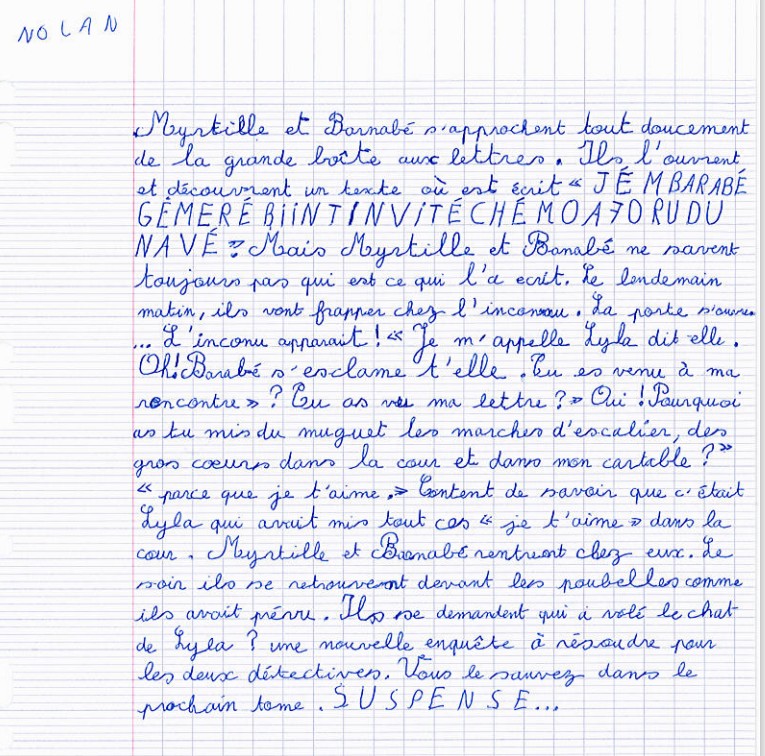 NOLAN
Myrtille et Barnabé s'approchent tout doucement
de la grande boîte aux lettres. Ils l'ouvrent
et découvrent un texte où est écrit « JÉ MBARABÉ
GÉMERÉ BiiNTINVITÉCHÉ MOA7ORUDU
NAVÉ » Mais Myrtille et Banabé ne savent
toujours pas qui est ce qui l'a ecrit. Le lendemain
matin, ils vont frapper chez l'inconnu. La porte s'ouvre
... L'inconu apparait ! « Je m'appelle Lyla dit elle.
Oh! Barabé s'esclame t'elle. Tu es venu à ma
rencontre » ? Tu as vu ma lettre ? » Oui ! Pourquoi
as tu mis du muguet les marches d'escalier, des
gros coeurs dans la cour et dans mon cartable ? »
« parce que je t'aime. » Content de savoir que c'était
Lyla qui avait mis tout ces « je t'aime » dans la
cour. Myrtille et Barnabé rentrent chez eux. Le
soir ils se retrouverent devant les poubelles comme
ils avait prévu. Ils se demandent qui à volé le chat
de Lyla ? une nouvelle enquête à résoudre pour
les deux détectives. Vous le saurez dans le
prochain tome. SUSPENSE...